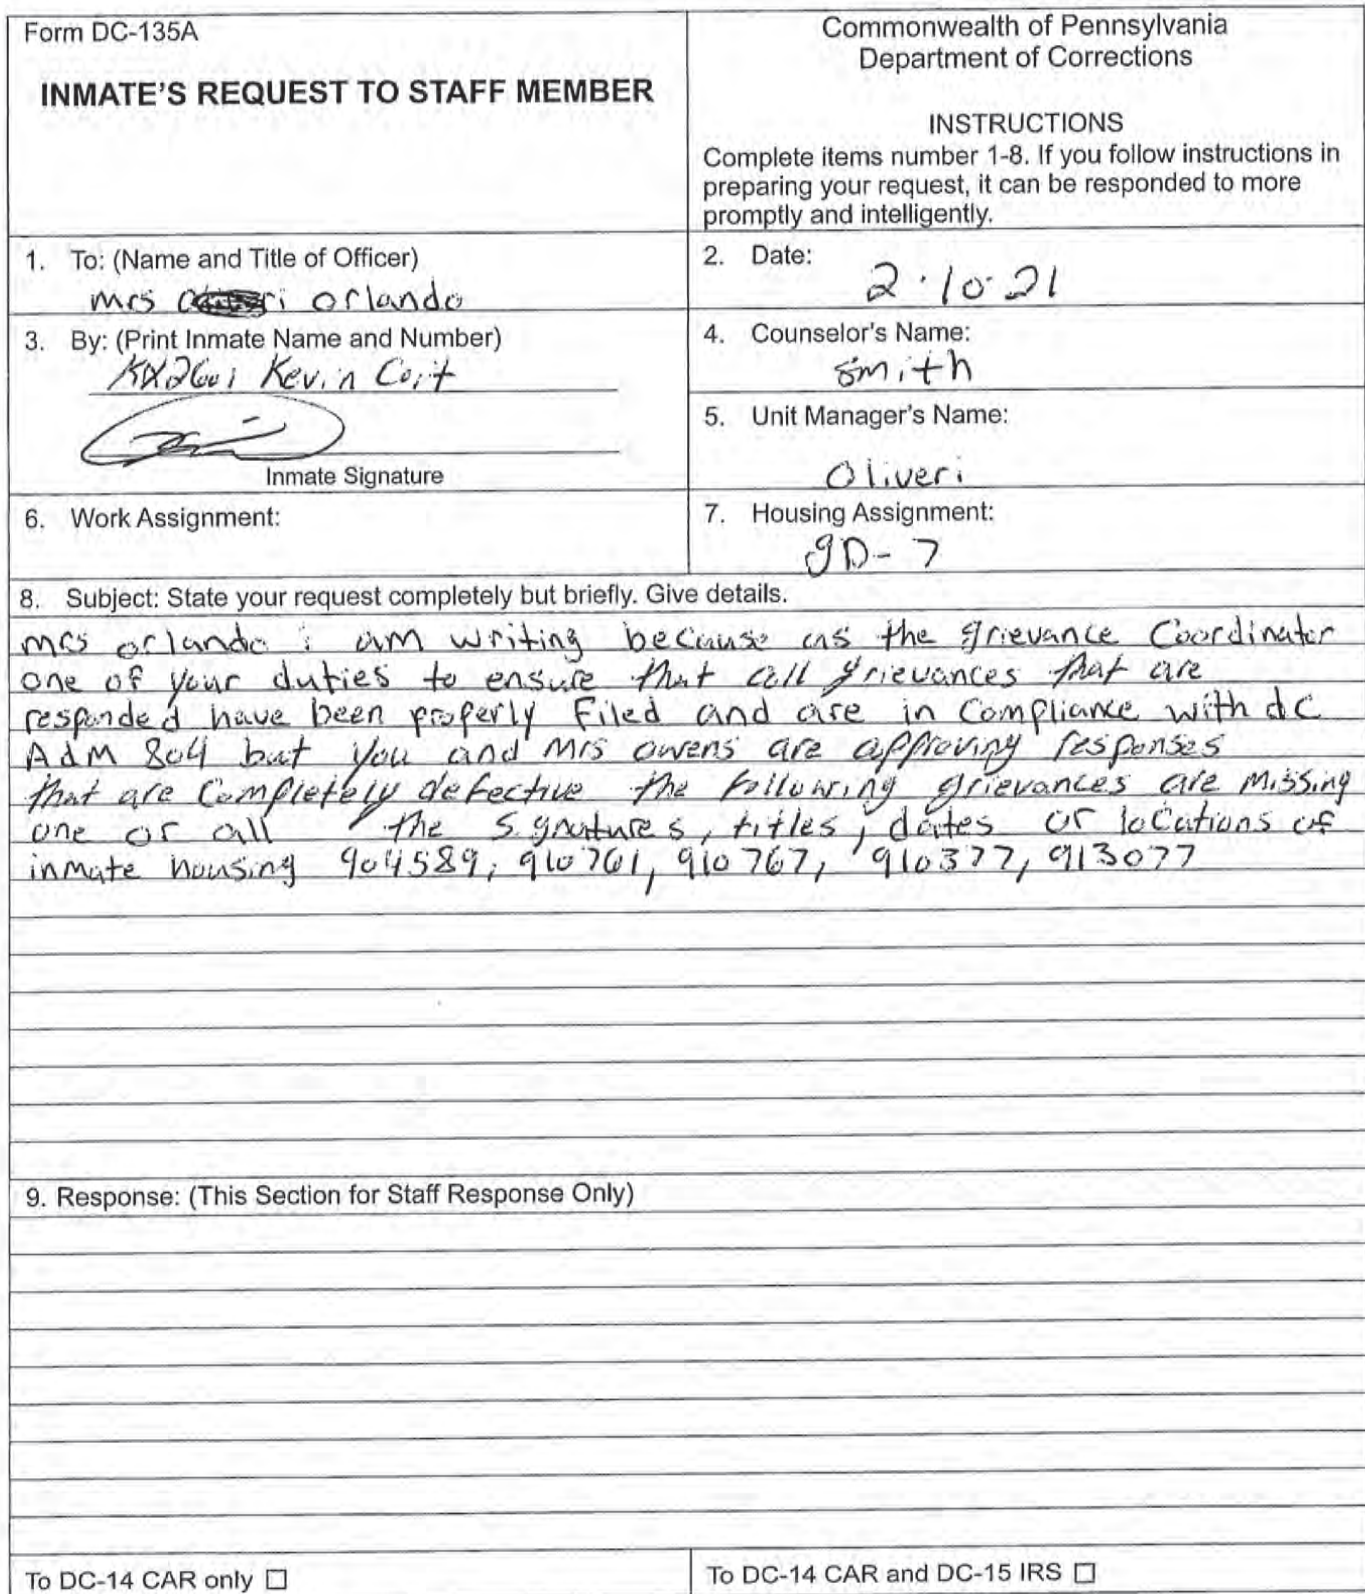 Form DC-135A
INMATE'S REQUEST TO STAFF MEMBER
Commonwealth of Pennsylvania
Department of Corrections
INSTRUCTIONS
Complete items number 1-8. If you follow instructions in
preparing your request, it can be responded to more
promptly and intelligently.
1. To: (Name and Title of Officer)
mrs orlando
2. Date:
2·10·21
3. By: (Print Inmate Name and Number)
Kevin Coit
Inmate Signature
4. Counselor's Name:
smith
5. Unit Manager's Name:
Oliveri
6. Work Assignment:
7. Housing Assignment:
gD-7
8. Subject: State your request completely but briefly. Give details.
mrs orlando i am writing because as the grievance Coordinator
one of your duties to ensure that all grievances that are
responded have been properly Filed and are in Compliance with dC
AdM 804 but you and Mrs owens are approving responses
that are Completely defective the following grievances are Missing
one or all the signatures, titles, dates or locations of
inmate housing 904589, 910761, 910767, 910377, 913077
9. Response: (This Section for Staff Response Only)
To DC-14 CAR only ☐
To DC-14 CAR and DC-15 IRS ☐